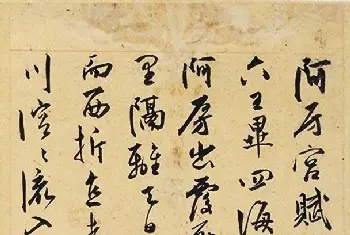 阿房宫賦
六王畢四海
阿房出覆
里隔離天日
而西折直走
川溶〻流入